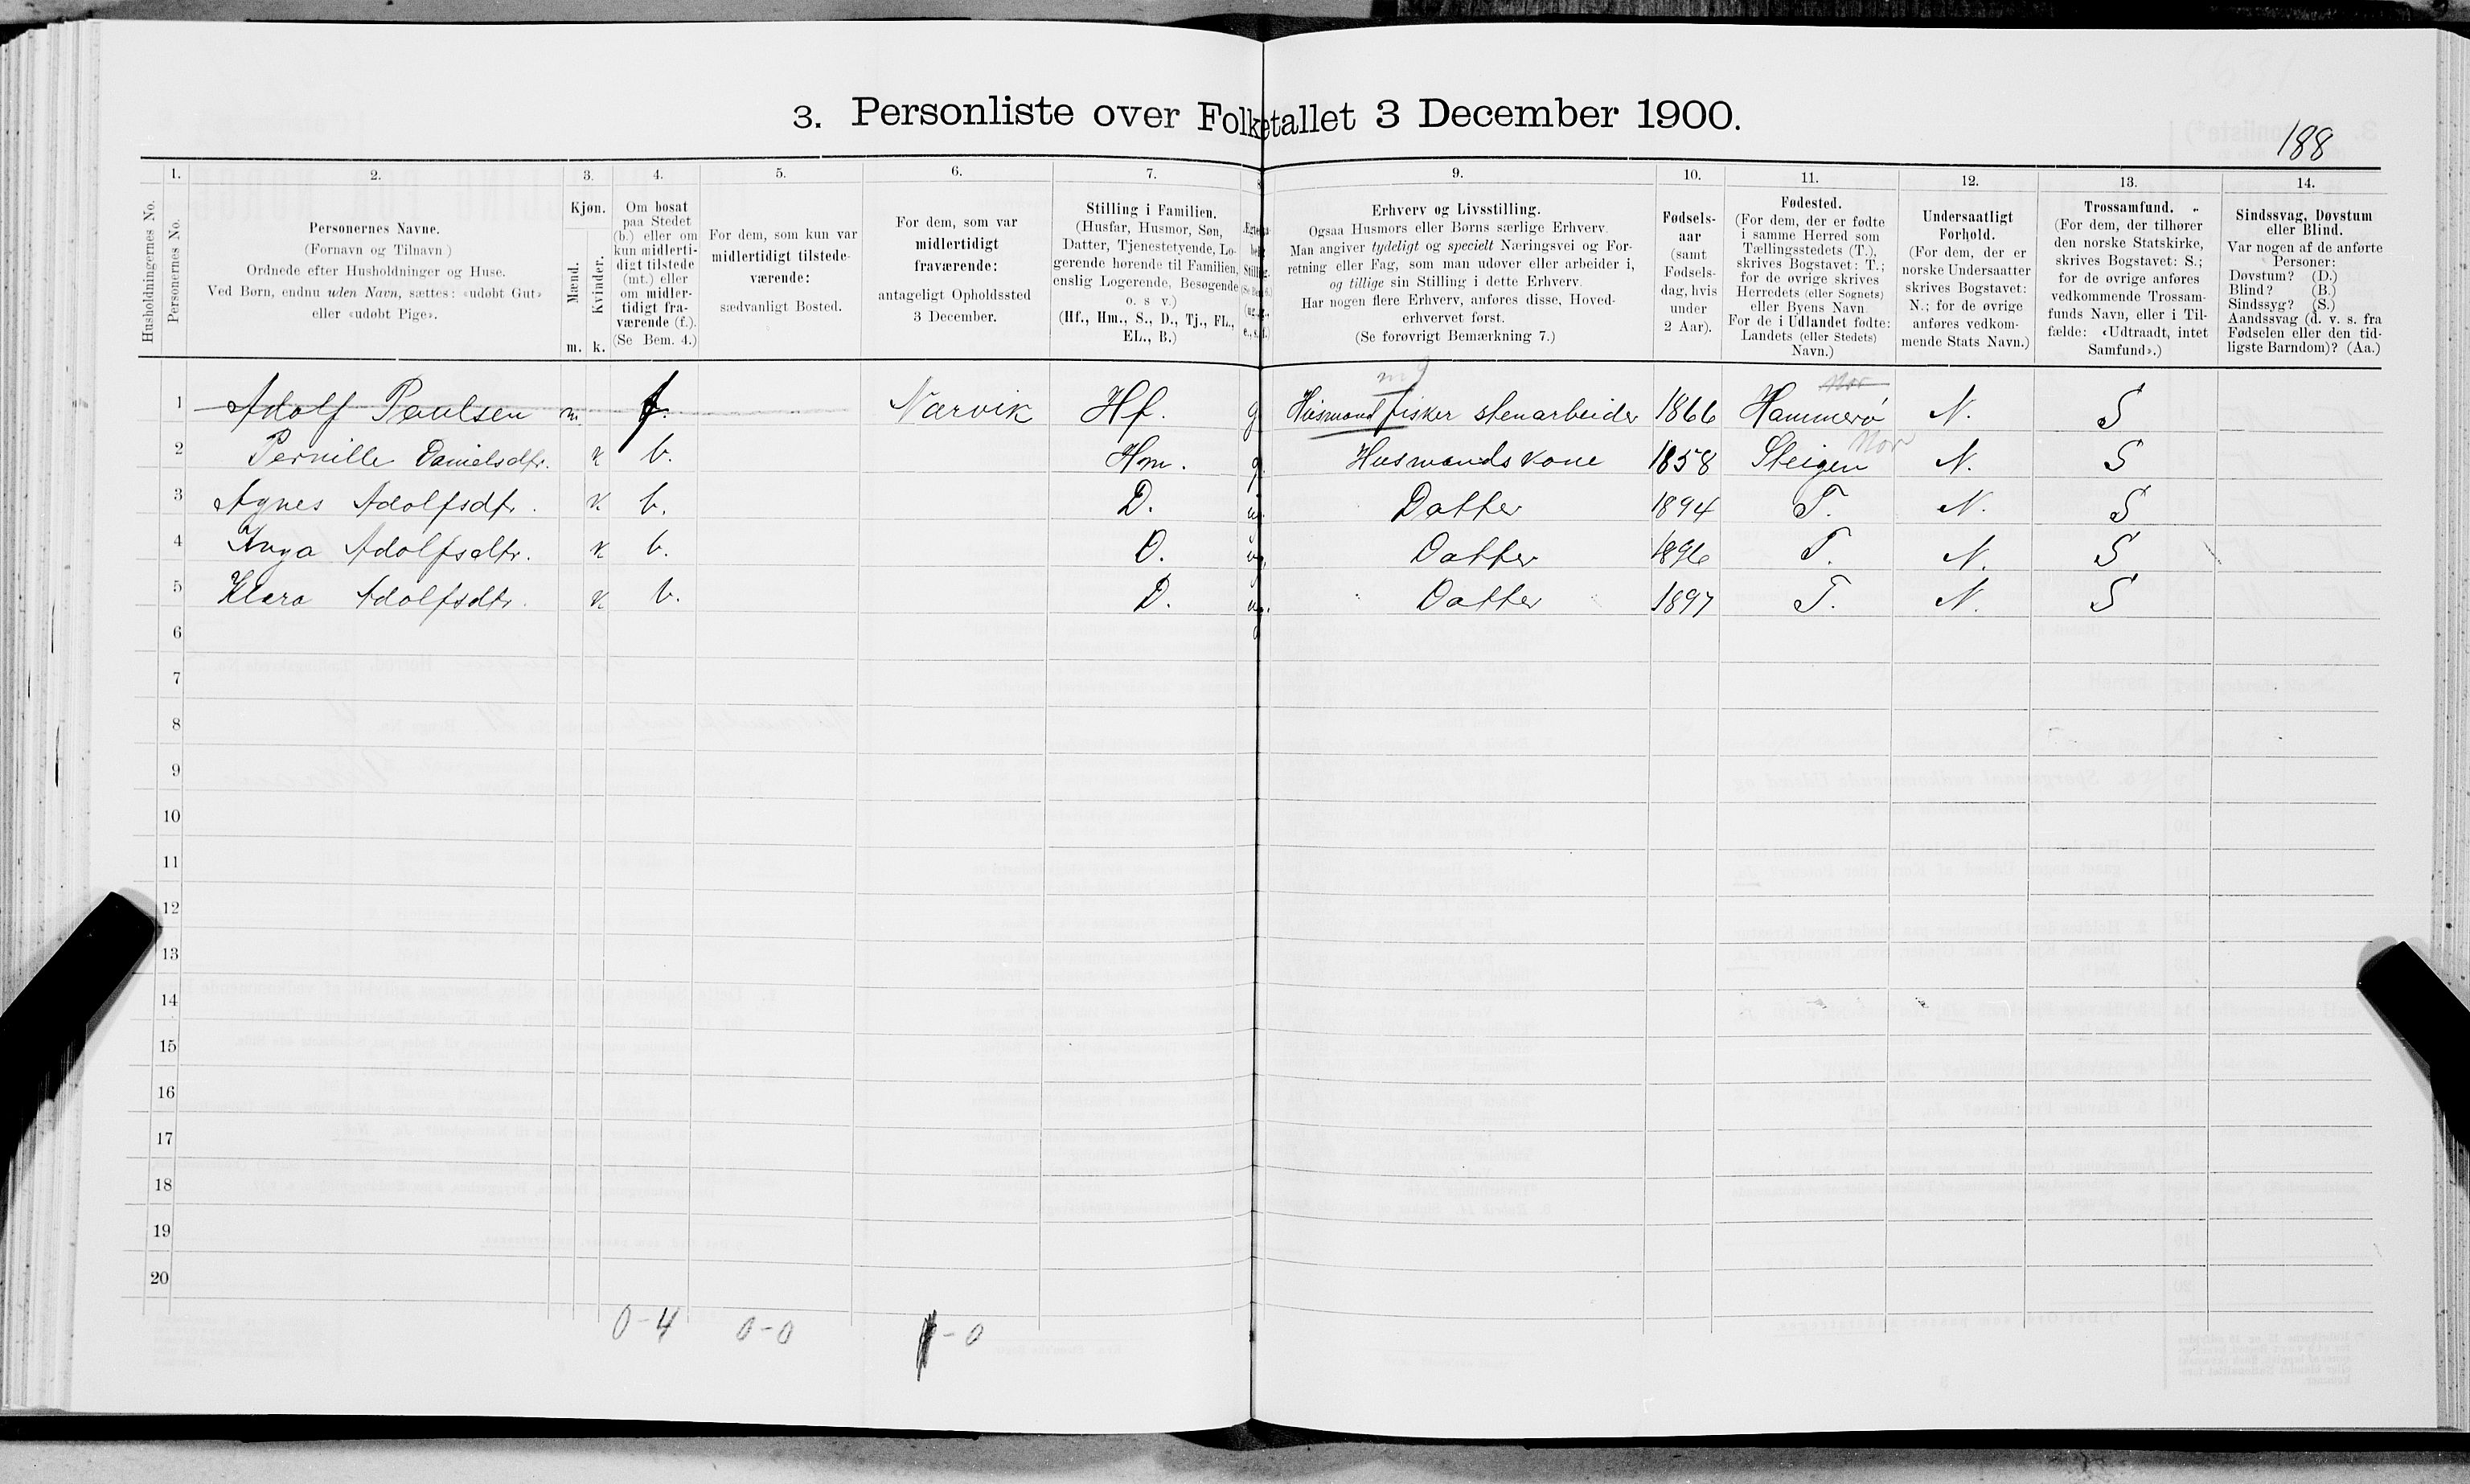 3. Personliste over Folketallet 3 December 1900.
188
1. 2. 3. 4. 5. 6. 7. 9. 10. 11. 12. 13. 14.
Husholdningernes No.
Personernes No.
Personernes Navne.
(Fornavn og Tilnavn.)
Ordnede efter Husholdninger og Huse.
Ved Børn, endnu uden Navn, sættes: «udøbt Gut»
eller «udøbt Pige».
Kjøn.
Mænd.
Kvinder.
m. k.
Om bosat
paa Stedet
(b.) eller om
kun midlerti-
digt tilstede
(mt.) eller
om midler-
tidigt fra-
værende (f.).
(Se Bem. 4.)
For dem, som kun var
midlertidigt tilstede-
værende:
sædvanligt Bosted.
For dem, som var
midlertidigt
fraværende:
antageligt Opholdssted
3 December.
Stilling i Familien.
(Husfar, Husmor, Søn,
Datter, Tjenestetyende, Lo-
gerende hørende til Familien,
enslig Logerende, Besøgende
o. s v.)
(Hf., Hm., S., D., Tj., FL.,
EL., B.)
Erhverv og Livsstilling.
Ogsaa Husmors eller Børns særlige Erhverv.
Man angiver tydeligt og specielt Næringsvei og For-
retning eller Fag, som man udøver eller arbeider i,
og tillige sin Stilling i dette Erhverv.
Har nogen flere Erhverv, anføres disse, Hoved-
erhvervet først.
(Se forøvrigt Bemærkning 7.)
Fødsels-
aar
(samt
Fødsels-
dag, hvis
under
2 Aar).
Fødested.
(For dem, der er fødte
i samme Herred som
Tællingsstedets (T.),
skrives Bogstavet: T.;
for de øvrige skrives
Herredets (eller Sognets)
eller Byens Navn.
For de i Udlandet fødte:
Landets (eller Stedets)
Navn.)
Undersaatligt
Forhold.
(For dem, der er
norske Undersaatter
skrives Bogstavet:
N.; for de øvrige
anføres vedkom-
mende Stats Navn.)
Trossamfund.
(For dem, der tilhører
den norske Statskirke,
skrives Bogstavet: S.;
for de øvrige anføres
vedkommende Trossam-
funds Navn, eller i Til-
fælde: «Udtraadt, intet
Samfund».)
Sindssvag, Døvstum
eller Blind.
Var nogen af de anførte
Personer:
Døvstum? (D.)
Blind? (B.)
Sindssyg? (S.)
Aandssvag (d. v. s. fra
Fødselen eller den tid-
ligste Barndom)? (Aa.)
1 Adolf Paulsen m f. Narvik Hf. g Husmand fisker stenarbeider 1866 Hammerø Nor N. S
2 Pernille Danielsdtr. k b. Hm. g. Husmands kone 1858 Steigen Nor N. S
3 Agnes Adolfsdtr. k b. D. ug. Datter 1894 T. N. S
4 Inga Adolfsdtr. k b. D. ug. Datter 1896 T. N. S
5 Klara Adolfsdtr. k b. D. ug. Datter 1897 T. N. S
6
7
8
9
10
11
12
13
14
15
16
17
18
19
20
0-4 0-0 1-0